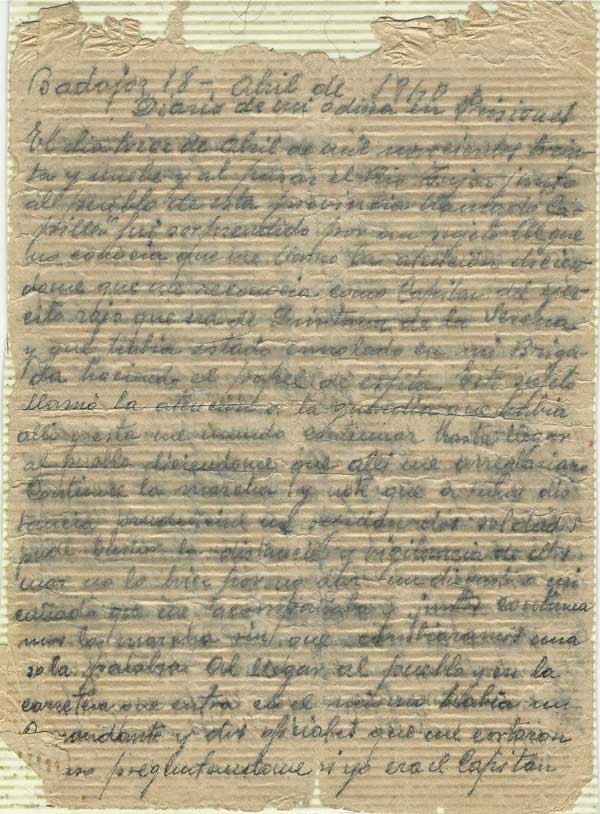 Badajoz 18 - Abril de 1940
Diario de mi odisea en Prisiones
El dia trece de Abril de mil novecientos trein
ta y nuebe y al pasar el Rio Zujar junto
al pueblo de esta provincia llamado Ca-
pilla" fui sorprendido por un sujeto
conocia que me llamo la atención dicien
dome que me reconocia como Capitan del ejer
cito rojo que era de Quintana de la Serena
y que habia estado enrolado en mi Briga
da haciendo el papel de espia. Este sujeto
llamó la atención a la guardia que habia
alli y esta me mando continuar hasta llegar
al pueblo diciendome que alli me arreglarian
Continue la marcha y note que a una dis
tancia prudencial me dos soldados
pude la distancia y vigilancia de ellos
mas no lo hice por no dar un disgusto a mi
cuñado que me acompañaba y juntos continua
mos la marcha sin que cambiaramos una
sola palabra. Al llegar al pueblo y en la
carretera que entra en el mismo habia un
Comandante y dos oficiales que me cortaron
preguntandome si yo era el Capitan